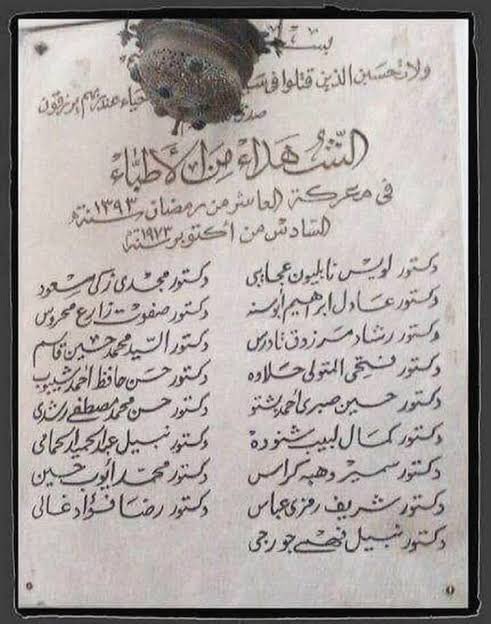 بسم
ولا تحسبن الذين قتلوا فى
أحياء عند ربهم يرزقون
صدق
الشهداء من الأطباء
فى معركة العاشر من رمضان سنة ١٣٩٣
السادس من أكتوبر سنة ١٩٧٣
دكتور لويس نابليون عجايبى
دكتور عادل ابراهيم أبوسنه
دكتور رشاد مرزوق نادرس
دكتور فتحى المتولى حلاوه
دكتور حسين صبرى أحمد بشتو
دكتور كمال لبيب شنوده
دكتور سمير وهبه كراس
دكتور شريف رمزى عباس
دكتور نبيل فهمى جورجى
دكتور مجدى زكى مسعود
دكتور صفوت زارع محروس
دكتور السيد محمد حسين قاسم
دكتور حسن حافظ أحمد شبيوب
دكتور حسن محمد مصطفى رشدى
دكتور نبيل عبد الحميد الحمامى
دكتور محمد أيوب حسين
دكتور رضا فؤاد غالى